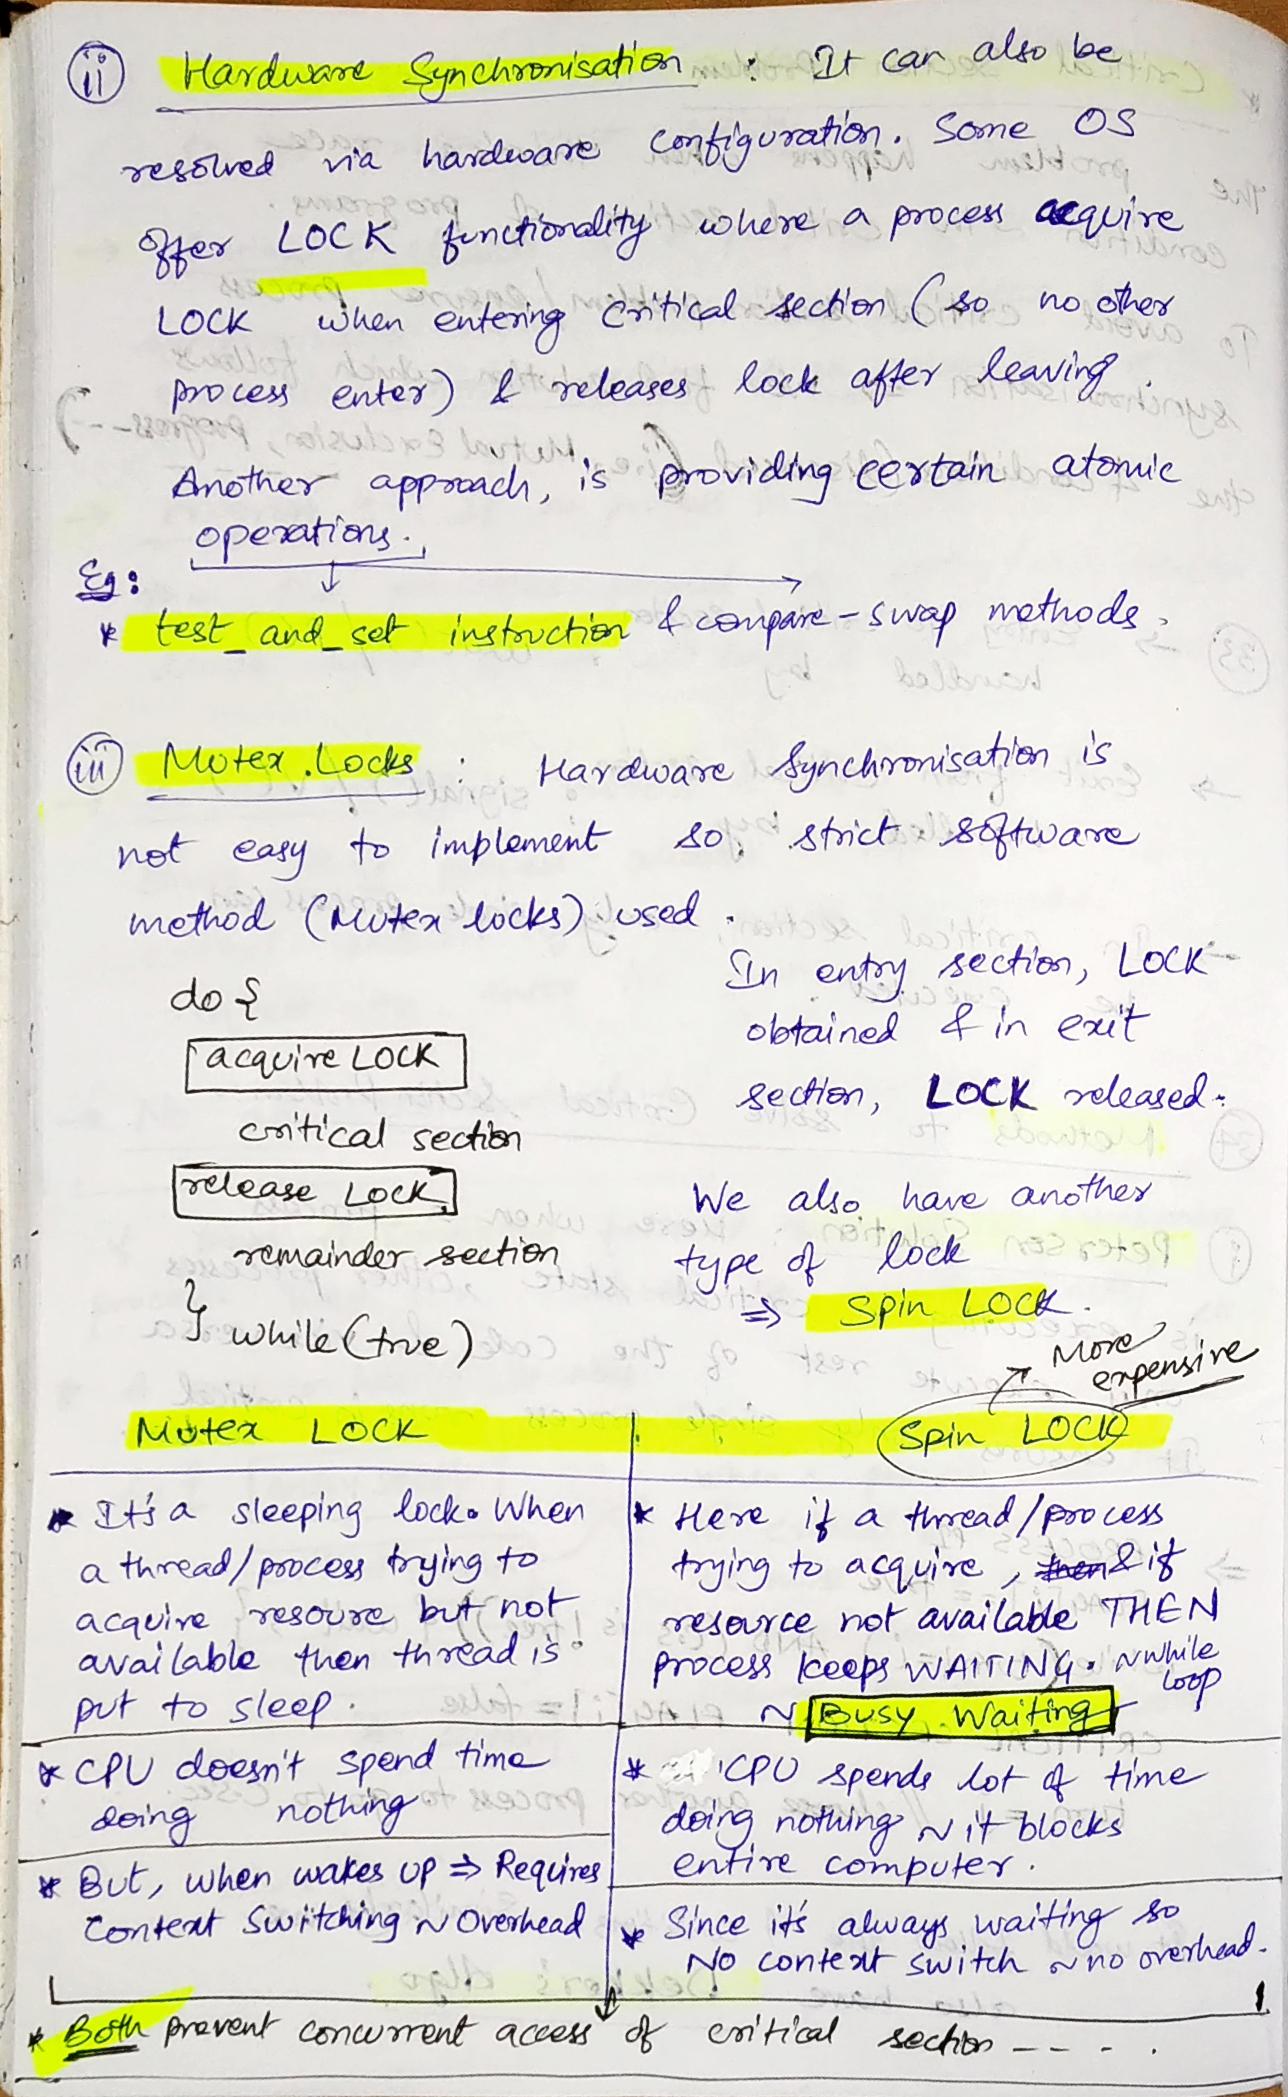 ii Hardware Synchronisation : It can also be
resolved via hardware configuration. Some OS
offer LOCK functionality where a process acquire
LOCK when entering Critical section (so no other
process enter) & releases lock after leaving.
Another approach, is providing certain atomic
operations.
Eg:
* test_and_set instruction & compare-swap methods.
iii Mutex Locks : Hardware Synchronisation is
not easy to implement so, strict software
method (Mutex locks) used.
do {
acquire LOCK
critical section
release LOCK
remainder section
} while (true)
In entry section, LOCK
obtained & in exit
section, LOCK released.
We also have another
type of lock
⇒ Spin LOCK.
More
expensive
Mutex LOCK
* It's a sleeping lock. When
a thread/process trying to
acquire resoure but not
available then thread is
put to sleep.
* CPU doesn't spend time
doing nothing
* But, when wakes up ⇒ Requires
Context Switching ~ Overhead
Spin LOCK
* Here if a thread/process
trying to acquire, then & if
resource not available THEN
process keeps WAITING. ~ while
loop
~ Busy Waiting
* CPU spends lot of time
doing nothing ~ it blocks
entire computer.
* Since it's always waiting so
No context switch ~ no overhead.
* Both prevent concurrent access of critical section ----.